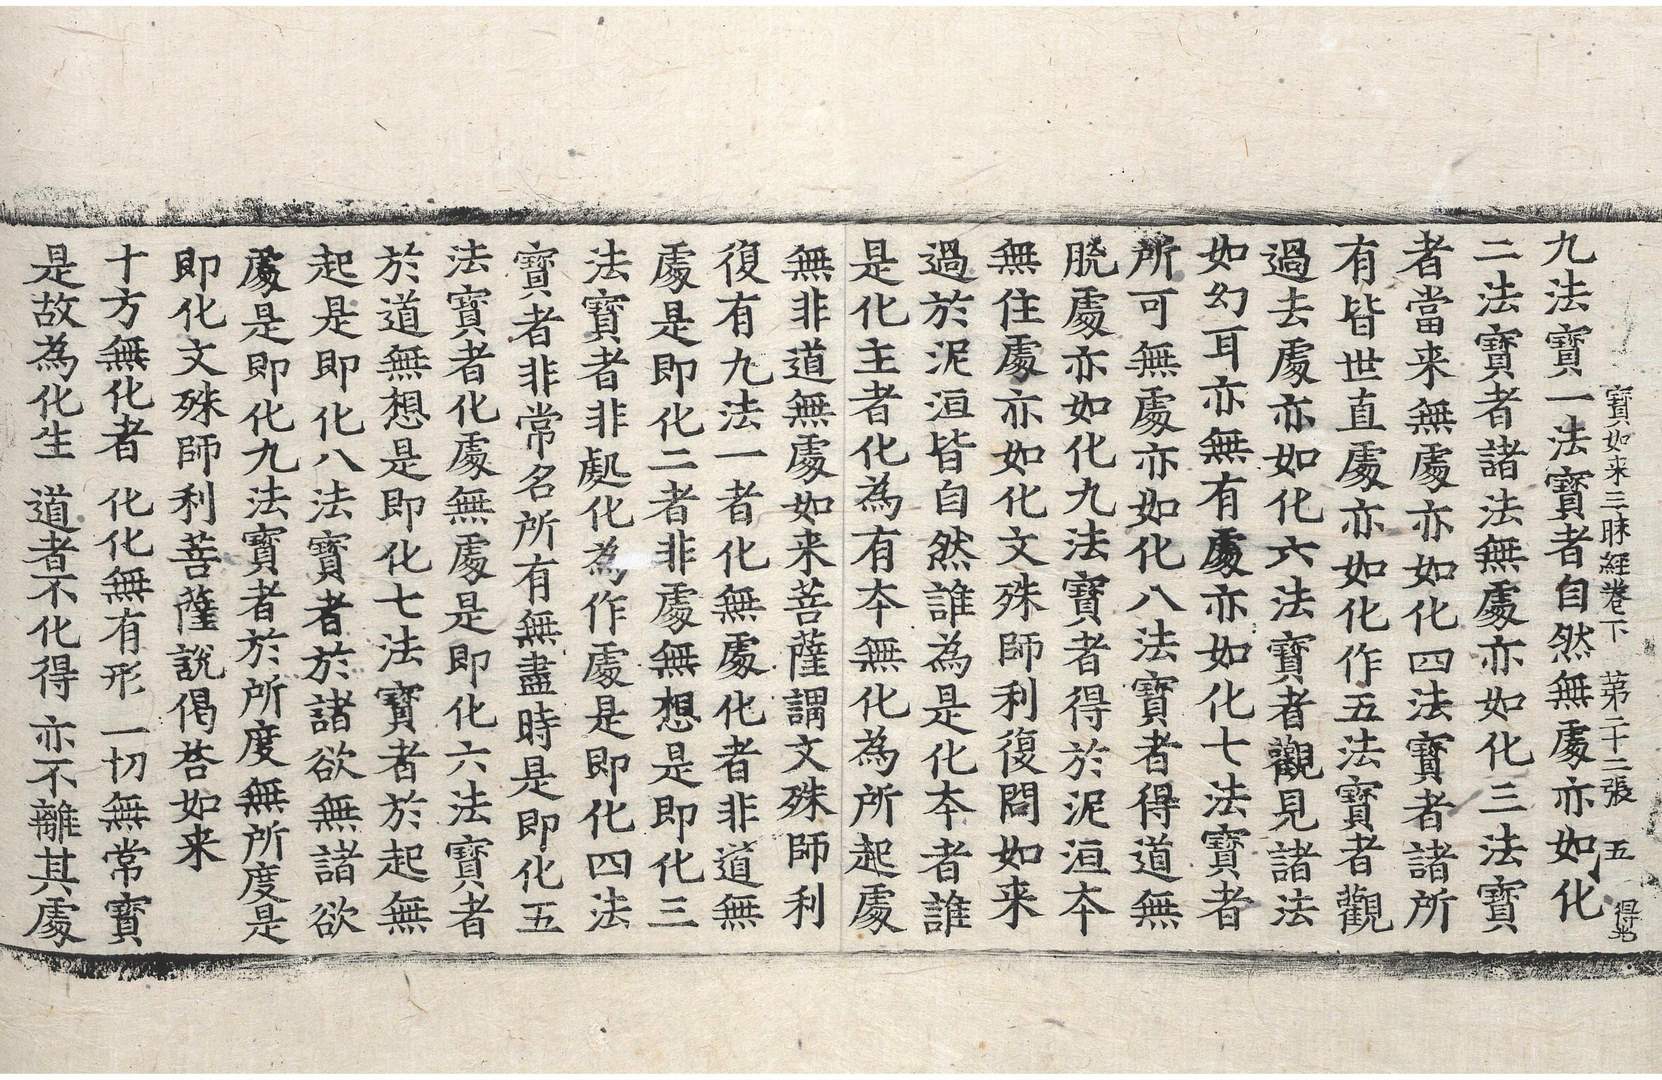 寶如来三昧經卷下　苐二十二張　五　得光
九法寶一法寶者自然無處亦如化
二法寶者諸法無處亦如化三法寶
者當来無處亦如化四法寶者諸所
有皆世直處亦如化作五法寶者觀
過去處亦如化六法寶者觀見諸法
如幻耳亦無有處亦如化七法寶者
所可無處亦如化八法寶者得道無
脫處亦如化九法寶者得於泥洹本
無住處亦如化文殊師利復問如来
過於泥洹皆自然誰為是化夲者誰
是化主者化為有夲無化為所起處
無非道無處如来菩薩謂文殊師利
復有九法一者化無處化者非道無
處是即化二者非處無想是即化三
法寶者非處化為作處是即化四法
寶者非常名所有無盡時是即化五
法寶者化處無處是即化六法寶者
於道無想是即化七法寶者於起無
起是即化八法寶者於諸欲無諸欲
處是即化九法寶者於所度無所度是
即化文殊師利菩薩說偈荅如来
十方無化者　化化無有形　一切無常寶
是故為化生　道者不化得　亦不離其處